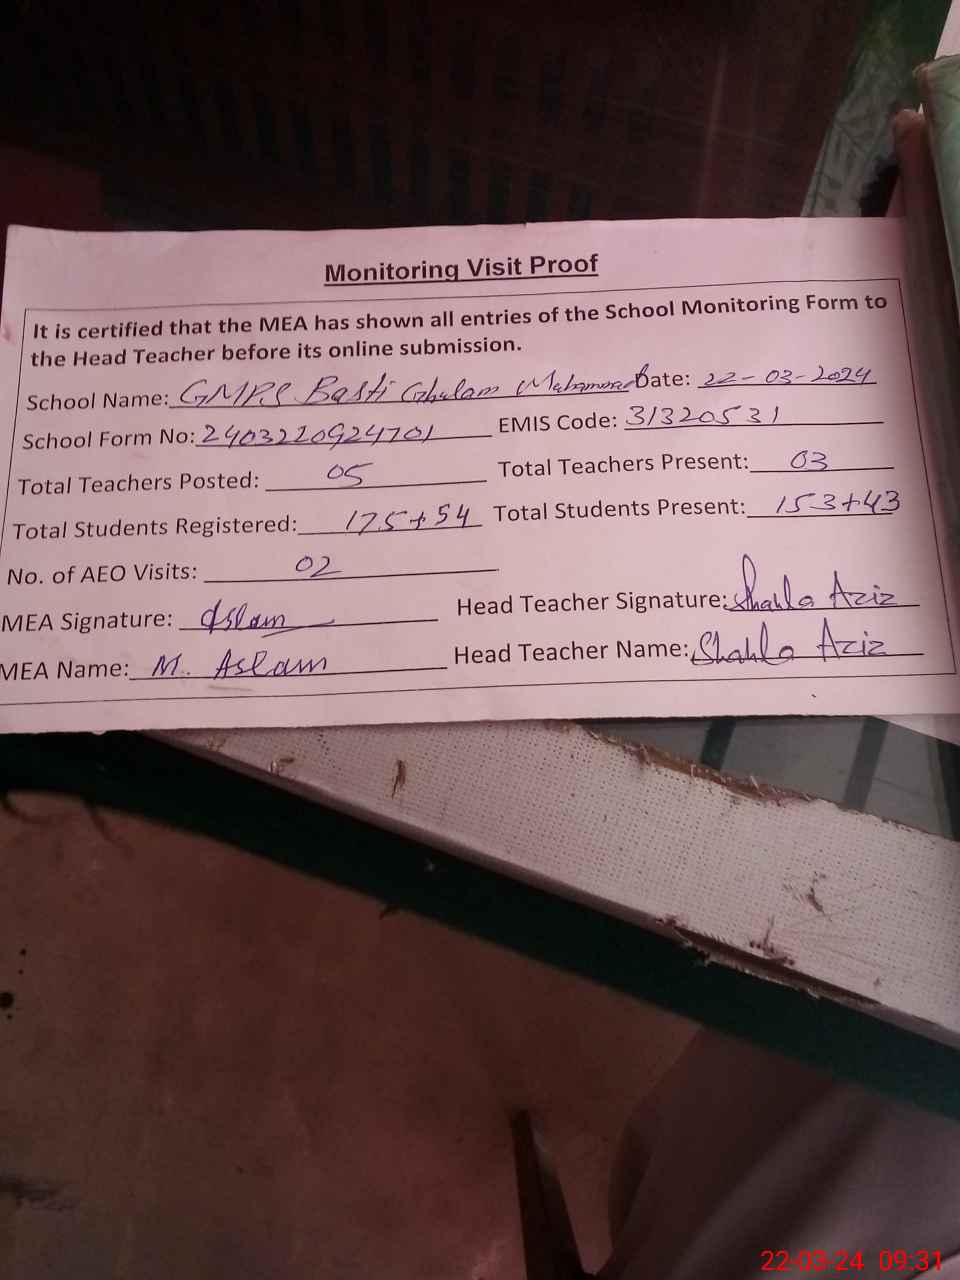 Monitoring Visit Proof
It is certified that the MEA has shown all entries of the School Monitoring Form to
the Head Teacher before its online submission.
School Name: GMPS Basti Ghulam Muhammad Date: 22-03-2024
School Form No: 2403220924701 EMIS Code: 31320531
Total Teachers Posted: 05 Total Teachers Present: 03
Total Students Registered: 175+54 Total Students Present: 153+43
No. of AEO Visits: 02
MEA Signature: Aslam Head Teacher Signature: Shahla Aziz
MEA Name: M. Aslam Head Teacher Name: Shahla Aziz
22-03-24 09:31